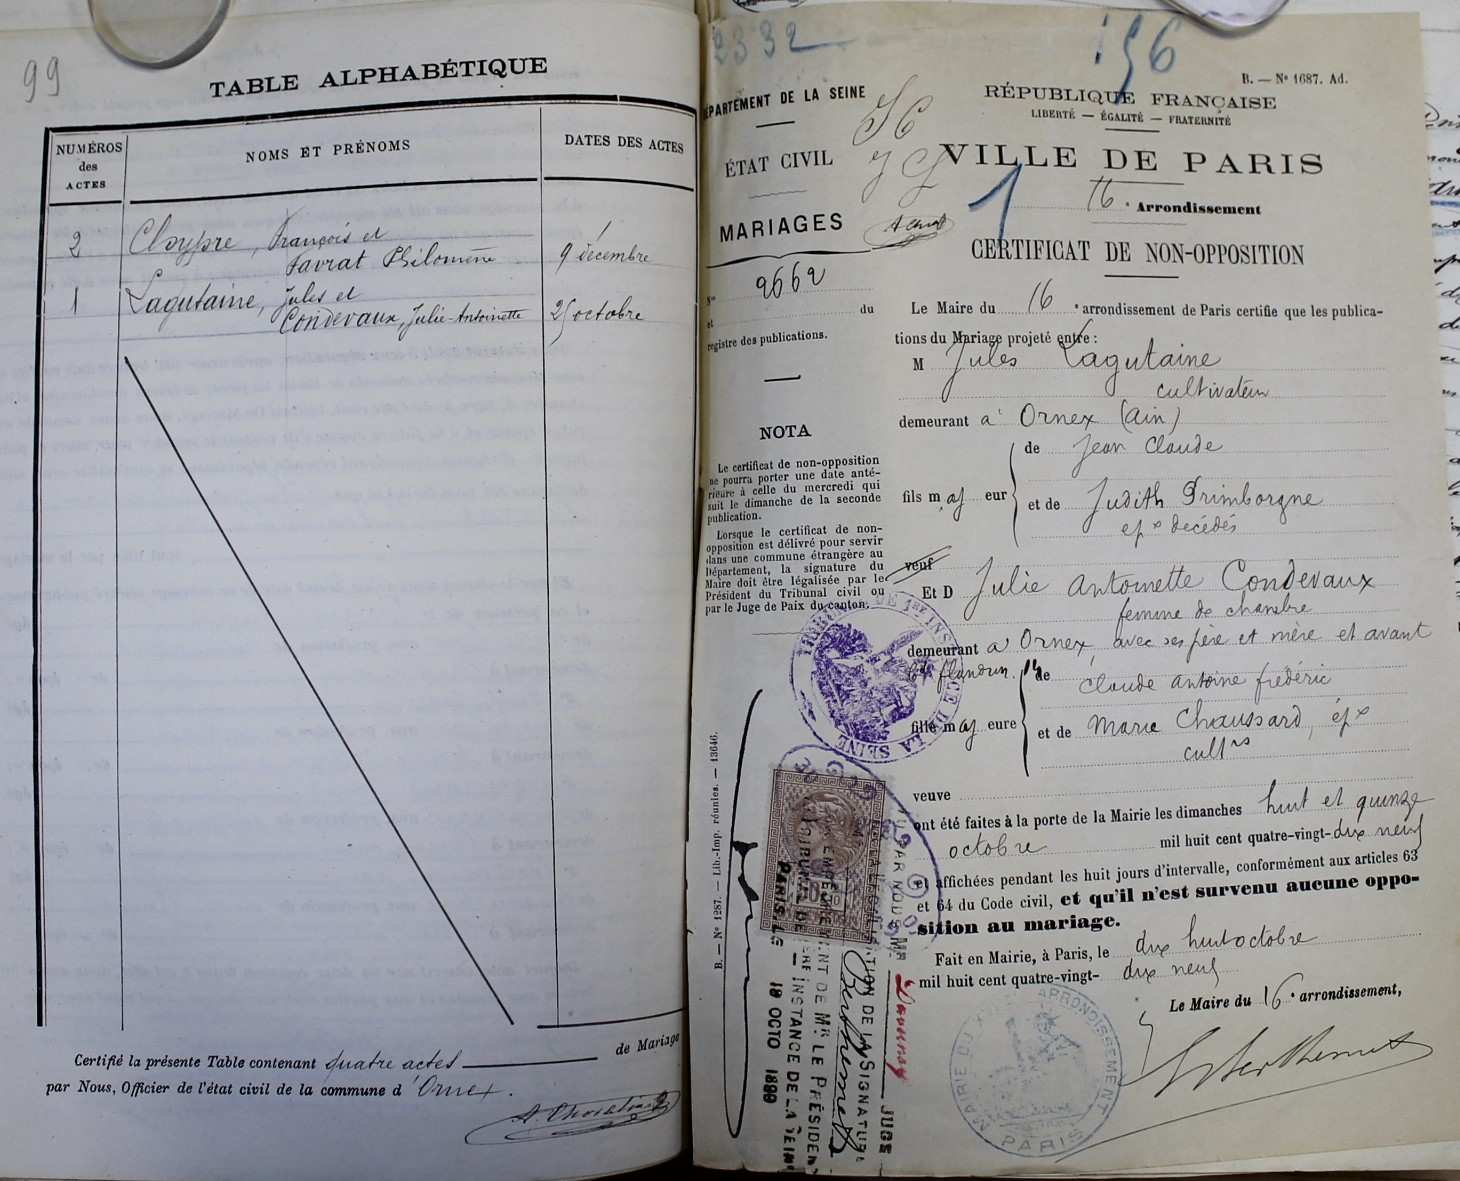 99
TABLE ALPHABÉTIQUE
NUMÉROS
des
ACTES
NOMS ET PRÉNOMS
DATES DES ACTES
2
François et
Favrat Philomène
9 décembre
1
Lagutaine, Jules et
Condevaux, Julie-Antoinette
25 octobre
Certifié la présente Table contenant quatre actes de Mariage
par Nous, Officier de l'état civil de la commune d'Ornex.
2332
156
B. — No 1687. Ad.
DÉPARTEMENT DE LA SEINE
ÉTAT CIVIL
MARIAGES
No 2662
et du
registre des publications.
NOTA
Le certificat de non-opposition
ne pourra porter une date anté-
rieure à celle du mercredi qui
suit le dimanche de la seconde
publication.
Lorsque le certificat de non-
opposition est délivré pour servir
dans une commune étrangère au
Département, la signature du
Maire doit être légalisée par le
Président du Tribunal civil ou
par le Juge de Paix du canton.
B. — No 1287. — Lib.-Imp. réunies. — 13646.
RÉPUBLIQUE FRANÇAISE
LIBERTÉ — ÉGALITÉ — FRATERNITÉ
VILLE DE PARIS
1
16e Arrondissement
CERTIFICAT DE NON-OPPOSITION
Le Maire du 16e arrondissement de Paris certifie que les publica-
tions du Mariage projeté entre :
M Jules Lagutaine
cultivateur
demeurant à Ornex (Ain)
fils majeur
de Jean Claude
et de Judith Primborgne
épx décédés
veuf
Et D Julie Antoinette Condevaux
femme de chambre
demeurant à Ornex, avec ses père et mère et avant
Bd flandrin. 14
fille majeure
de Claude Antoine frédéric
et de Marie Chaussard, épx
cultrs
veuve
ont été faites à la porte de la Mairie les dimanches huit et quinze
octobre mil huit cent quatre-vingt-dix neuf
et affichées pendant les huit jours d'intervalle, conformément aux articles 63
et 64 du Code civil, et qu'il n'est survenu aucune oppo-
sition au mariage.
Fait en Mairie, à Paris, le dix huit octobre
mil huit cent quatre-vingt-dix neuf
Le Maire du 16e arrondissement,
TRIBUNAL DE 1ERE INSTANCE DE LA SEINE
MAIRIE DU XVIe ARRONDISSEMENT
PARIS
JUGE
PARIS, LE 19 OCTO 1899